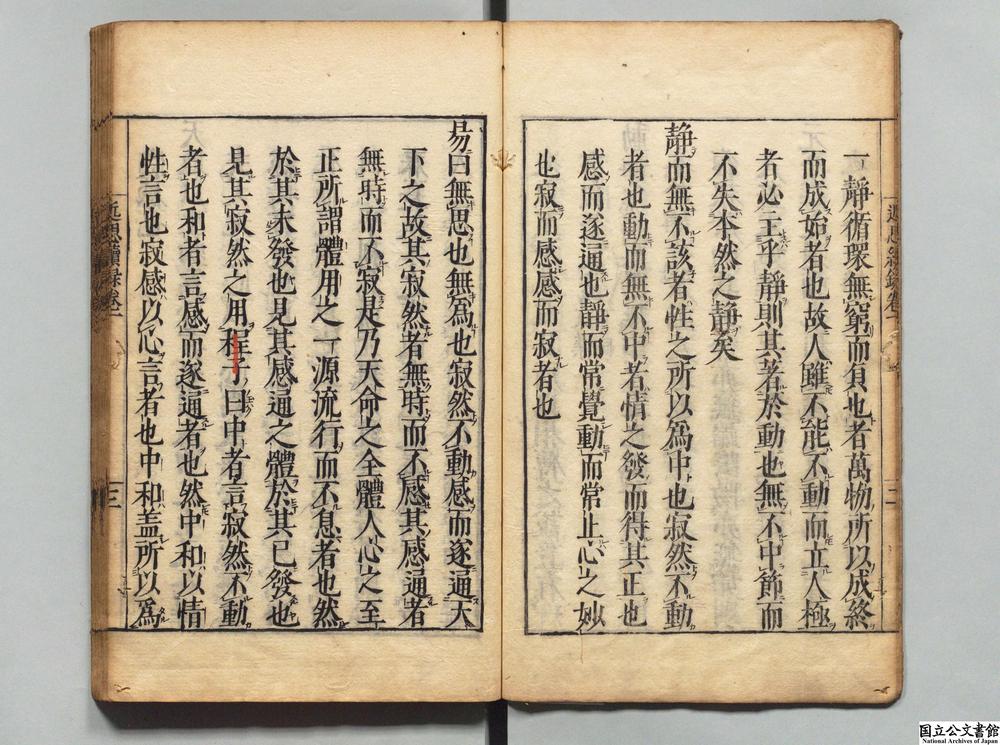 近思續錄卷一
一靜循環無窮而貞也者萬物所以成終
而成始者也故人雖不能不動而立人極
者必主乎靜則其著於動也無不中節而
不失本然之靜矣
靜而無不該者性之所以爲中也寂然不動
者也動而無不中者情之發而得其正也
感而遂通也靜而常覺動而常止心之妙
也寂而感感而寂者也
易曰無思也無爲也寂然不動感而遂通天
下之故其寂然者無時而不感其感通者
無時而不寂是乃天命之全體人心之至
正所謂體用之一源流行而不息者也然
於其未發也見其感通之體於其已發也
見其寂然之用程子曰中者言寂然不動
者也和者言感而遂通者也然中和以情
性言也寂感以心言者也中和盖所以爲
近思續錄卷一
三
国立公文書館
National Archives of Japan